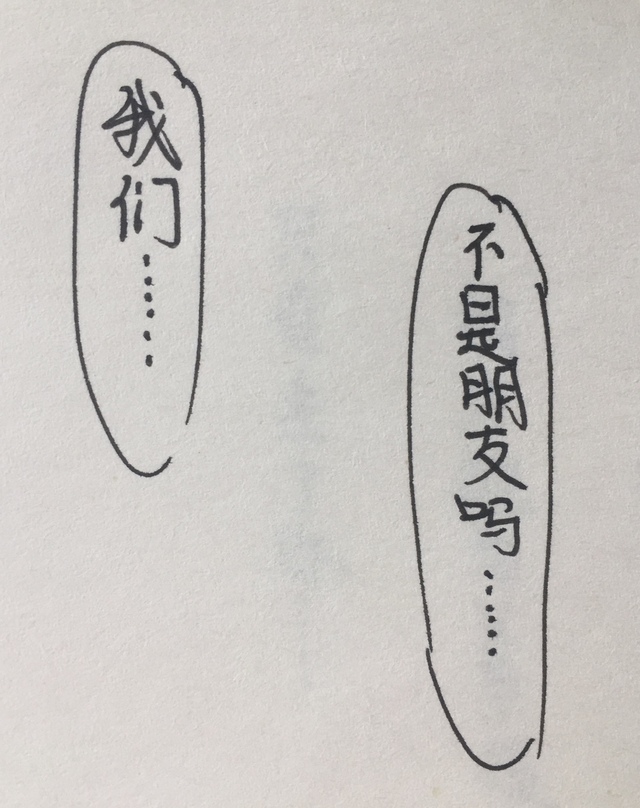 我们……
不是朋友吗……